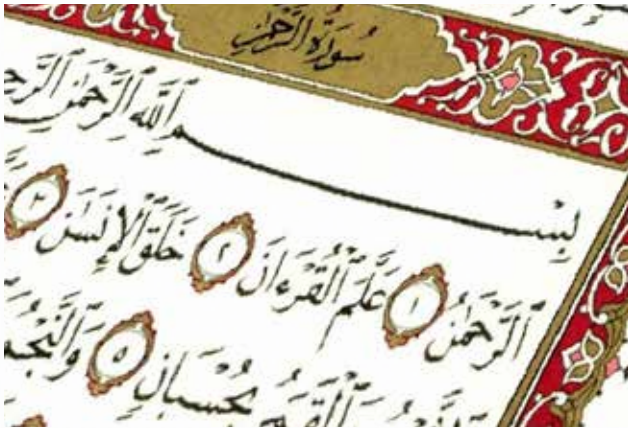 سُورَةُ الرَّحْمَٰن
بِسْمِ ٱللَّهِ ٱلرَّحْمَٰنِ
ٱلرَّحْمَٰنُ ١ عَلَّمَ ٱلْقُرْءَانَ ٢ خَلَقَ ٱلْإِنسَٰنَ ٣
بِحُسْبَانٍ ٥ وَٱلنَّجْمُ